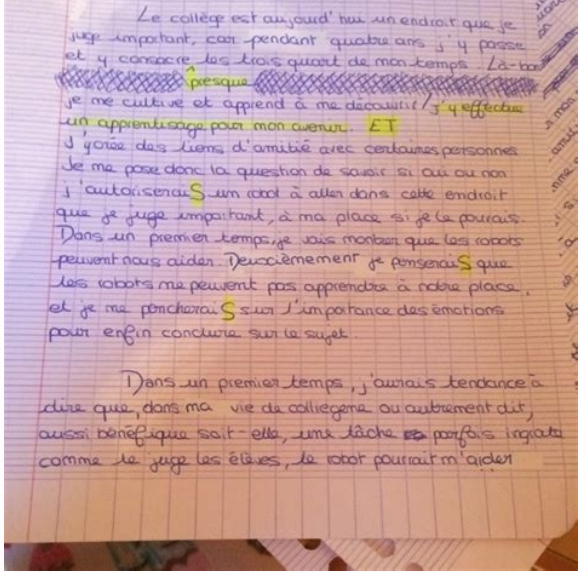 Le collège est aujourd'hui un endroit que je
juge important, car pendant quatre ans j'y passe
et y consacre les trois quart de mon temps. Là-bas
presque
je me cultive et apprend à me découvrir/j'y effectue
un apprentisage pour mon avenir. ET
j'y crée des liens d'amitié avec certaines personnes
Je me pose donc la question de savoir si oui ou non
j'autoriseraiS un robot à aller dans cette endroit
que je juge important, à ma place si je le pourais.
Dans un premier temps, je vais montrer que les robots
peuvent nous aider. Deuxièmement je penseraiS que
les robots ne peuvent pas apprendre à notre place.
et je me pencheraiS sur l'importance des émotions
pour enfin conclure sur le sujet.
Dans un premier temps, j'aurais tendance à
dire que, dans ma vie de collégienne ou autrement dit,
aussi bénéfique soit-elle, une tâche parfois ingrate
comme le juge les élèves, le robot pourrait m'aider